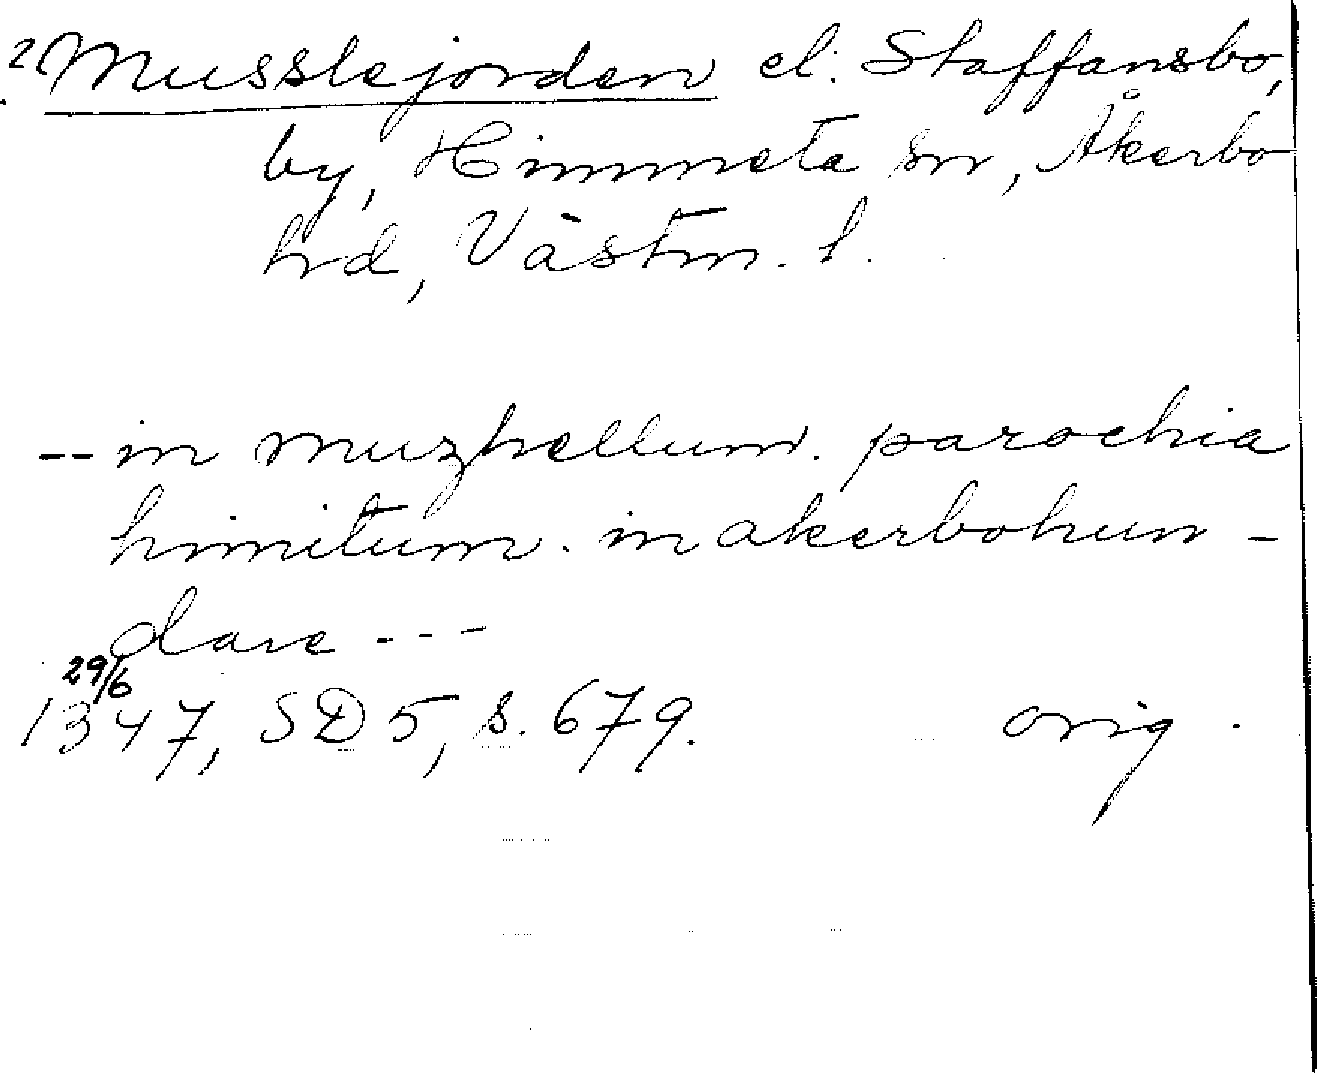 2. Musslejorden el. Staffansbo,
by, Himmeta sn, Åkerbo
hd, Västm. l.
-- in muzhellum. parochia
himitum. in akerbohun -
dare ---
29/6
1347, SD 5, s. 679. orig.